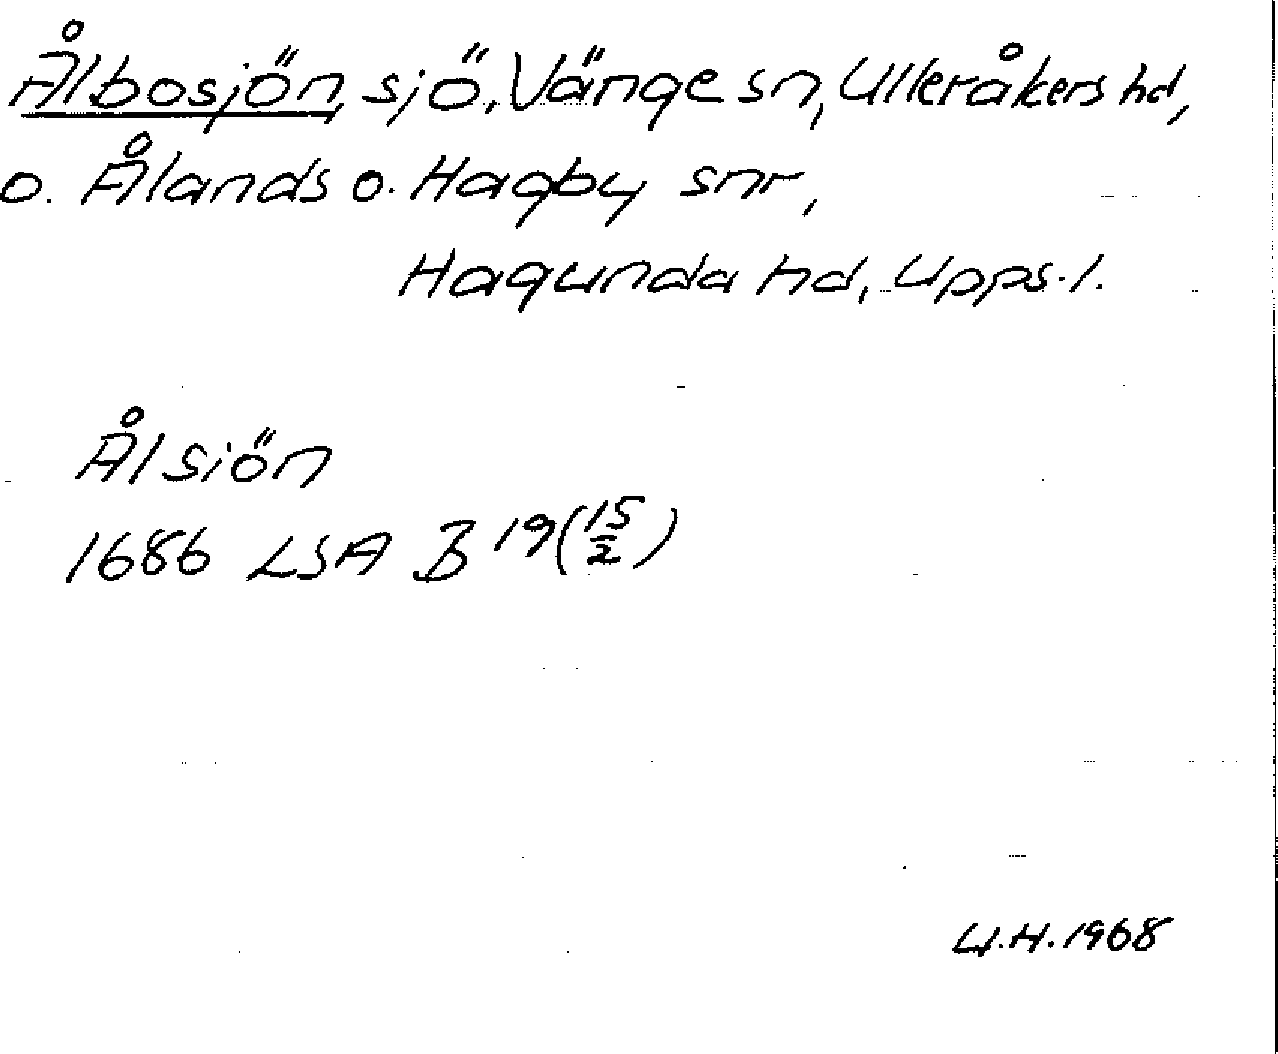 Ålbosjön, sjö, Vänge sn, Ulleråkers hd,
o. Ålands o. Hagby snr,
Hagunda hd, Upps. l.
Ålsiön
1686 LSA B 19(15/2)
U.H. 1968